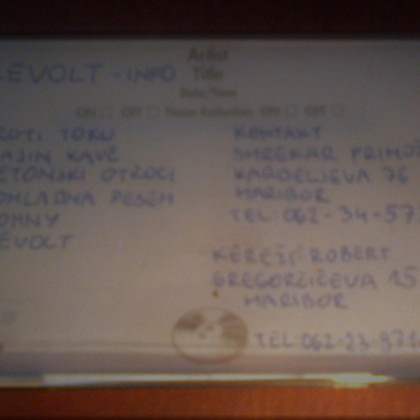 Artist
EVOLT - INFO Title
Date/Time
ON OFF Noise Reduction ON OFF
ROTI TOKU
AJIN KAVČ
ETONSKI OTROCI
OMLADNA PESEM
OHNY
EVOLT
KONTAKT
SMREKAR PRIMO
KARDELJEVA 76
MARIBOR
TEL: 062-34-57
KEREŠI ROBERT
GREGORČIČEVA 15
MARIBOR
TEL 062-23-